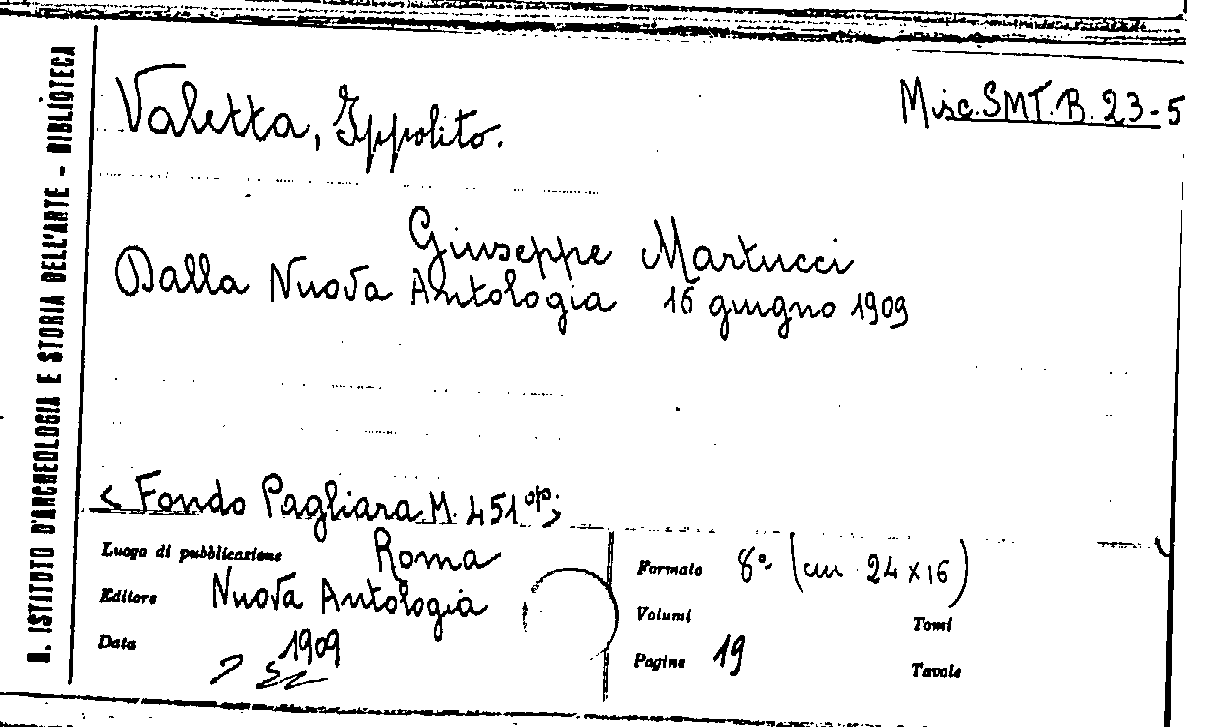 R. ISTITUTO D'ARCHEOLOGIA E STORIA DELL'ARTE - BIBLIOTECA
Valetta, Ippolito.
Misc. SMT. B. 23-5
Giuseppe Martucci
Dalla Nuova Antologia 16 giugno 1909
< Fondo Pagliara M. 451 op. >
Luogo di pubblicazione Roma
Editore Nuova Antologia
Data 1909
Formato 8º (cm 24 x 16)
Volumi
Tomi
Pagine 19
Tavole